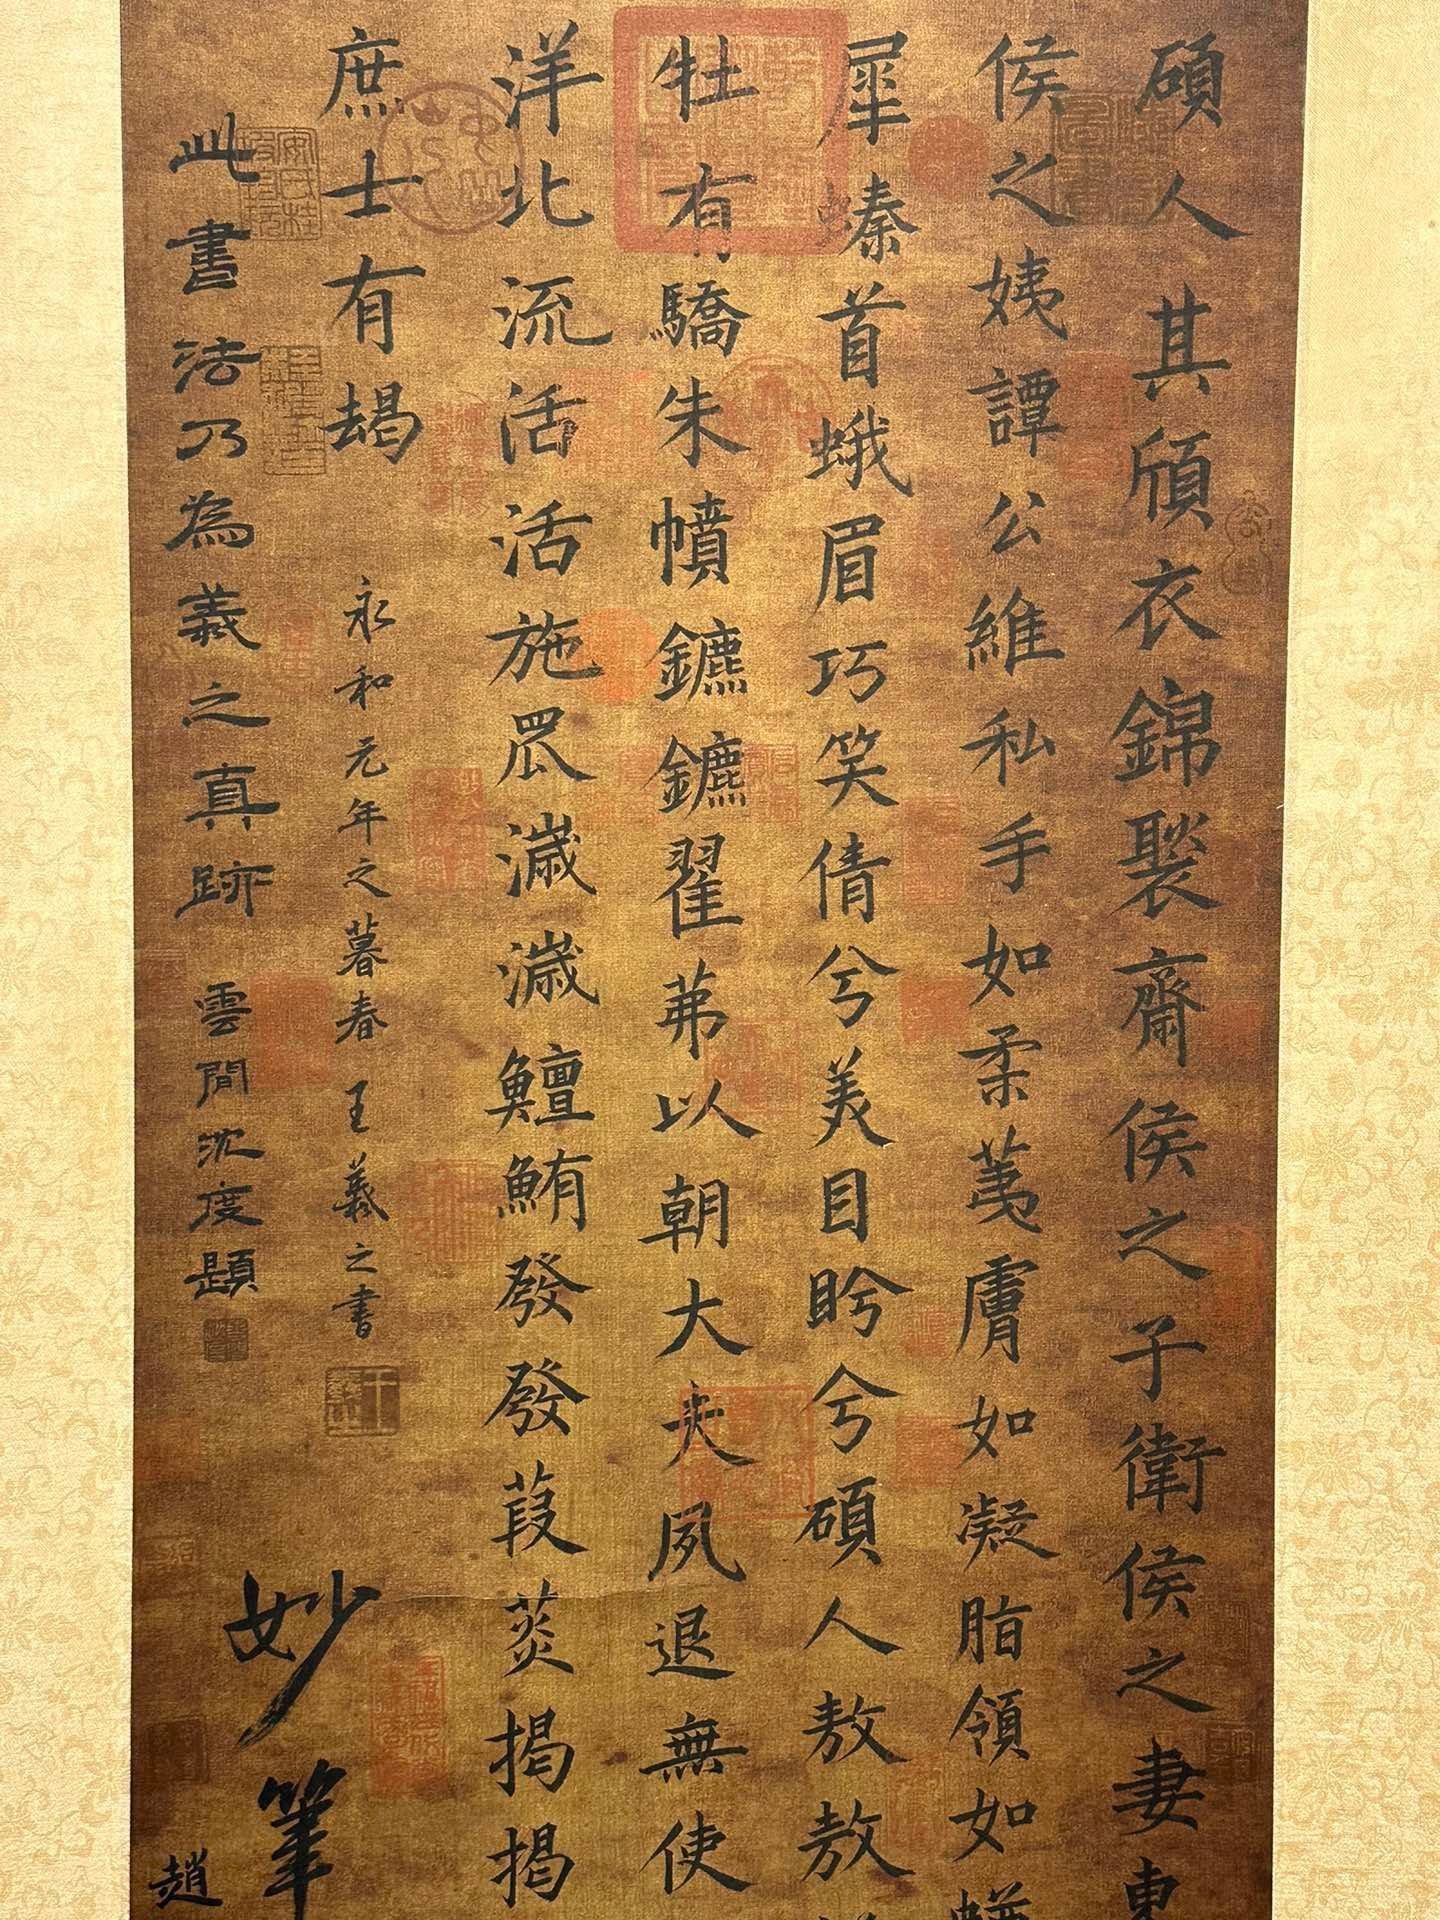 碩人其頎衣錦褧齋侯之子衛侯之妻東
侯之姨譚公維私手如柔荑膚如凝脂領如蝤
犀螓首蛾眉巧笑倩兮美目盼兮碩人敖敖
牡有驕朱幩鑣鑣翟茀以朝大夫夙退無使
洋北流活活施罛濊濊鱣鮪發發葭菼揭揭
庶士有朅
永和元年之暮春 王羲之書
此書法乃為羲之真跡 雲間沈度題
妙筆
趙